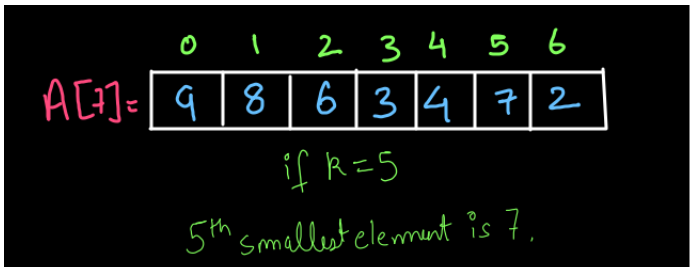 0 1 2 3 4 5 6
A[7]= 9 8 6 3 4 7 2
if k=5
5th smallest element is 7.